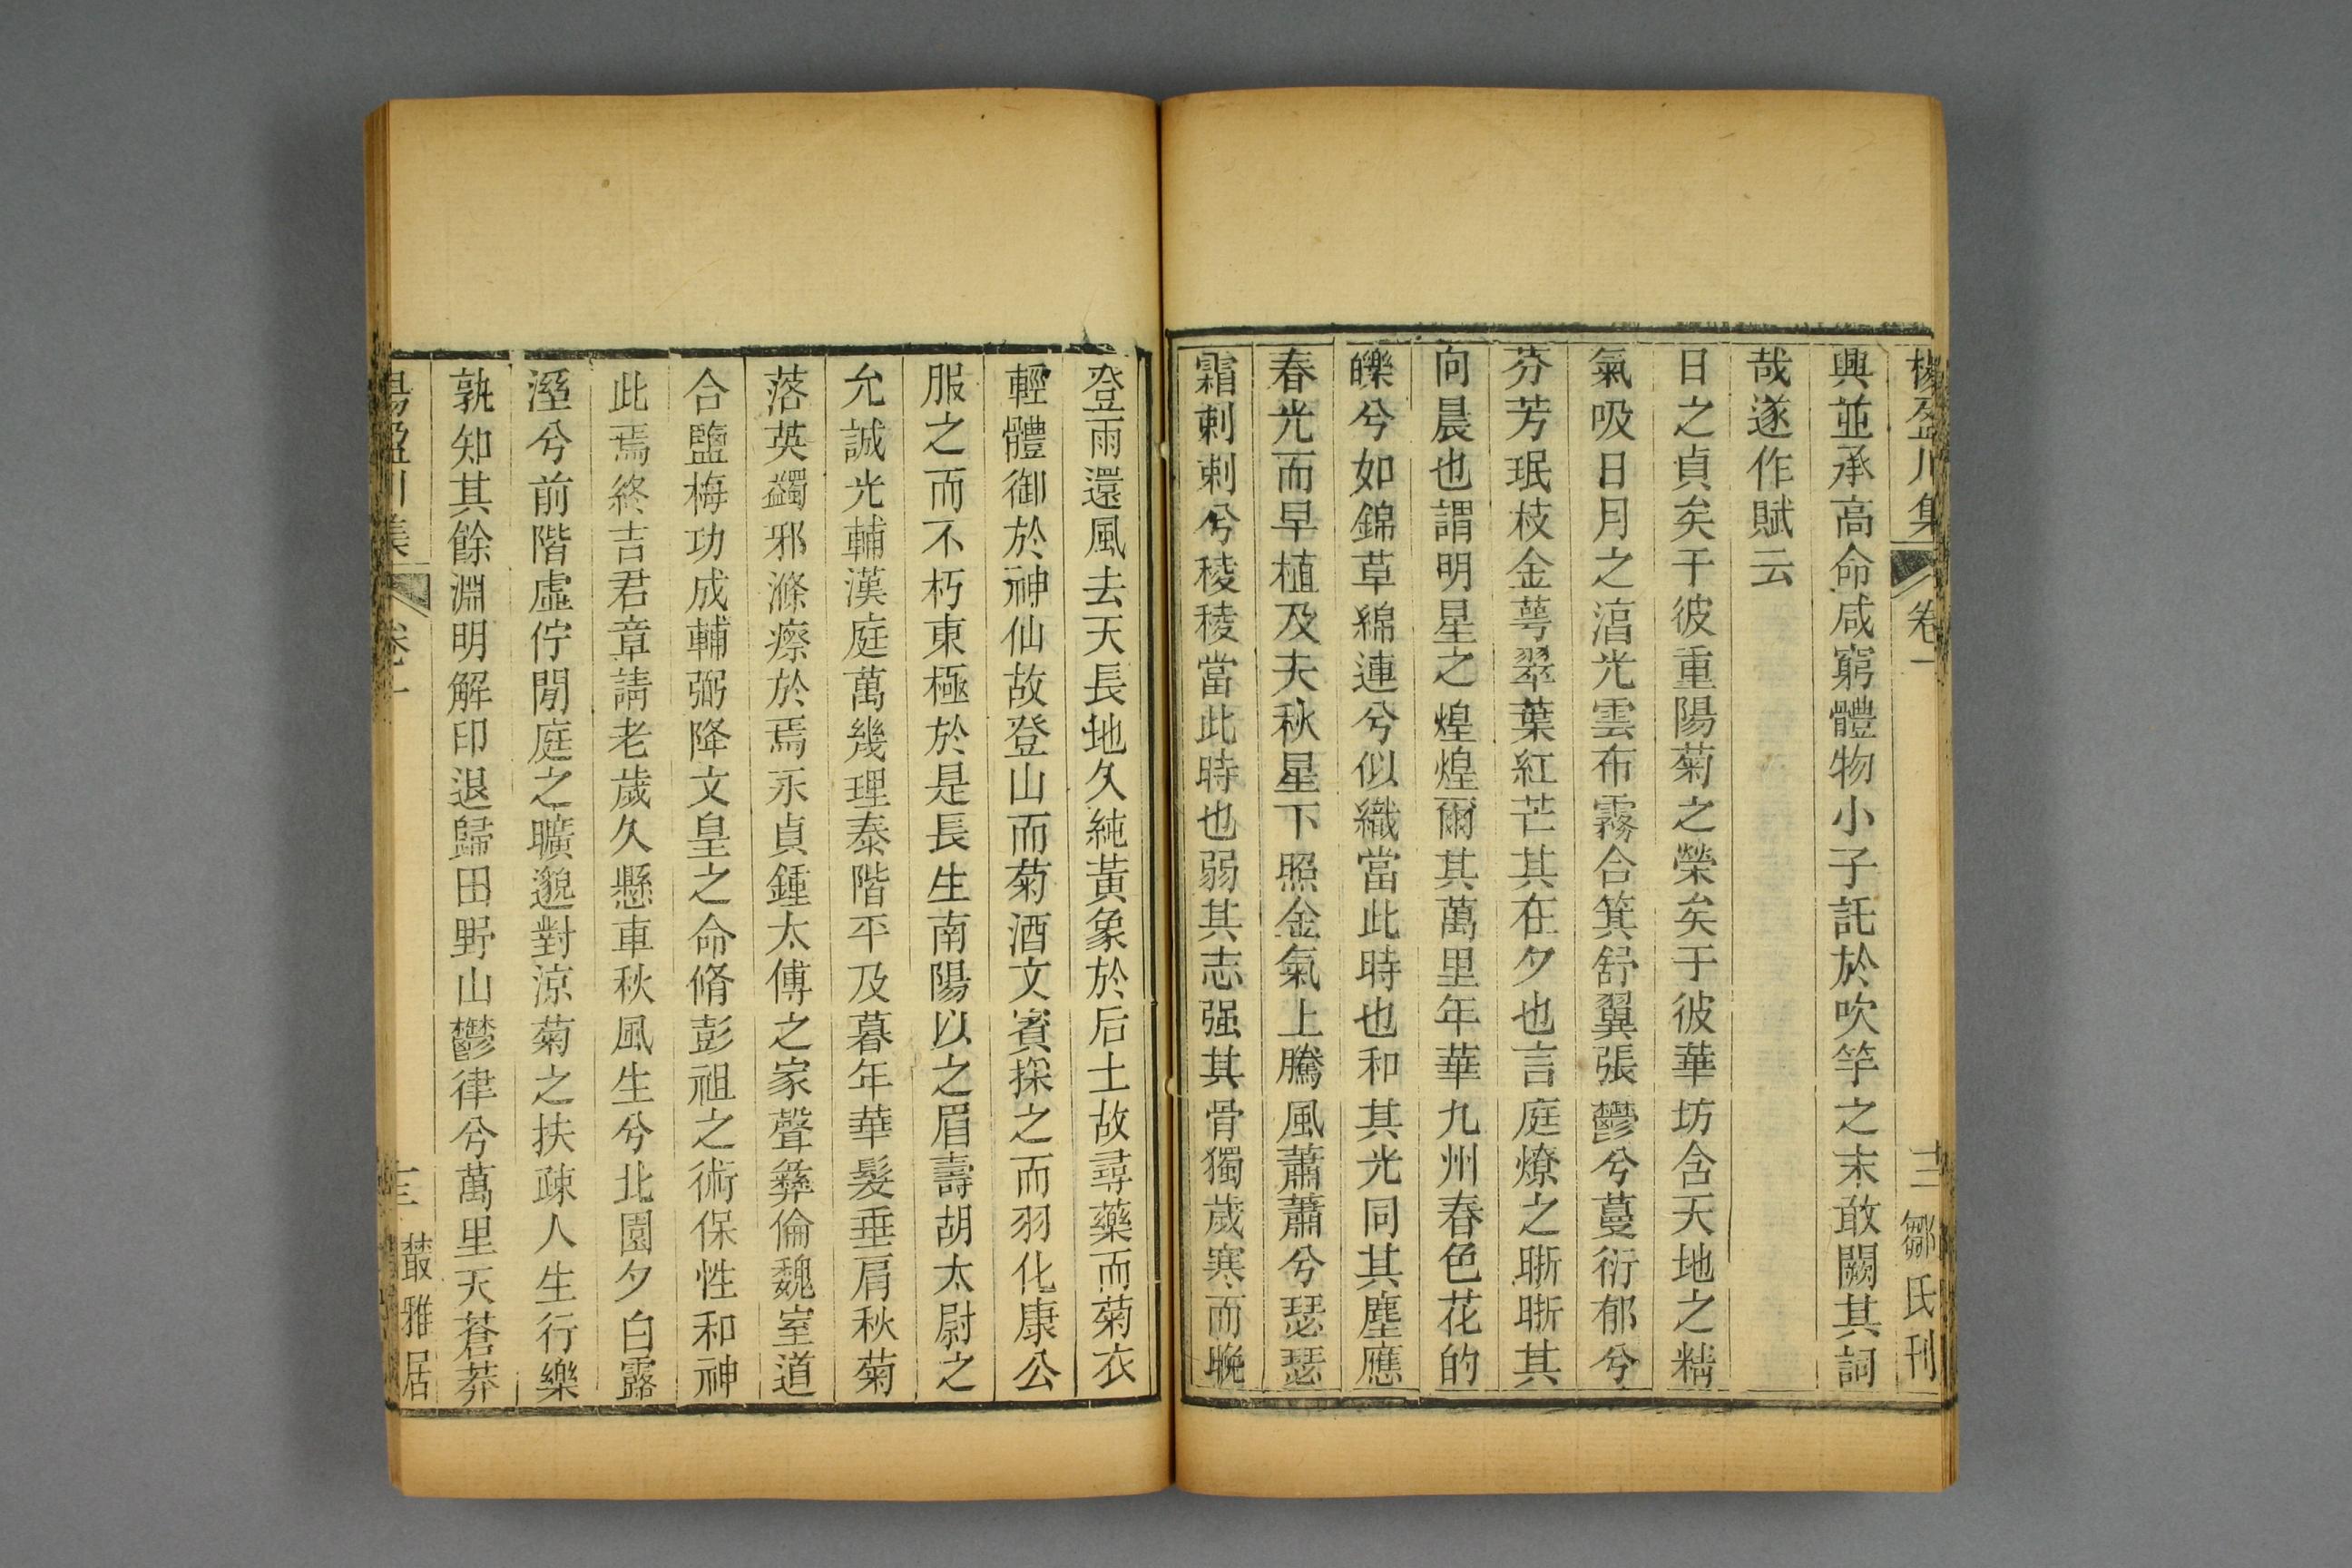 楊盈川集 卷一 十二 鄒氏刊
興並承高命咸窮體物小子託於吹竽之末敢闕其詞
哉遂作賦云
日之貞矣干彼重陽菊之榮矣于彼華坊含天地之精
氣吸日月之淯光雲布霧合箕舒翼張鬱兮蔓衍郁兮
芬芳珉枝金萼翠葉紅芒其在夕也言庭燎之晣晣其
向晨也謂明星之煌煌爾其萬里年華九州春色花的
皪兮如錦草綿連兮似織當此時也和其光同其塵應
春光而早植及夫秋星下照金氣上騰風蕭蕭兮瑟瑟
霜剌剌兮稜稜當此時也弱其志强其骨獨歲寒而晚
登雨還風去天長地久純黃象於后土故尋藥而菊衣
輕體御於神仙故登山而菊酒文賓採之而羽化康公
服之而不朽東極於是長生南陽以之眉壽胡太尉之
允誠光輔漢庭萬幾理泰階平及暮年華髮垂肩秋菊
落英蠲邪滌瘵於焉永貞鍾太傅之家聲彝倫魏室道
合鹽梅功成輔弼降文皇之命脩彭祖之術保性和神
此焉終吉君章請老歲久懸車秋風生兮北園夕白露
溼兮前階虛佇閒庭之曠邈對涼菊之扶疎人生行樂
孰知其餘淵明解印退歸田野山鬱律兮萬里天蒼莽
楊盈川集 卷一 十三 叢雅居